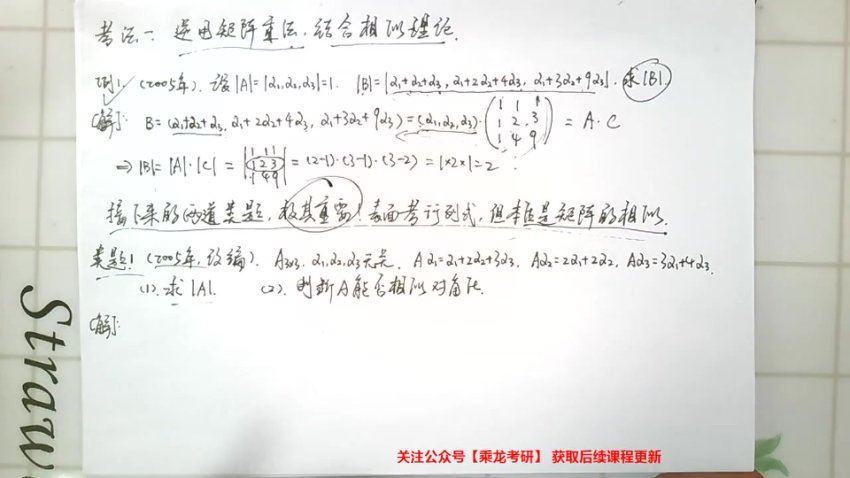 考法一、逆用矩阵乘法,结合相似理论.
例1.(2005年).设|A|=|α₁,α₂,α₃|=1. |B|=|α₁+α₂+α₃, α₁+2α₂+4α₃, α₁+3α₂+9α₃|. 求|B|.
[解]: B=(α₁+α₂+α₃, α₁+2α₂+4α₃, α₁+3α₂+9α₃)=(α₁,α₂,α₃)·(1 1 1 / 1 2 3 / 1 4 9) = A·C
⇒|B|=|A|·|C| = |1 1 1 / 1 2 3 / 1 4 9| = (2-1)·(3-1)·(3-2) = 1×2×1=2
接下来的两道类题,极其重要!表面考行列式,但本质是矩阵的相似.
类题1 (2005年,改编). A₃ₓ₃, α₁,α₂,α₃无关, Aα₁=α₁+2α₂+3α₃, Aα₂=2α₁+2α₂, Aα₃=3α₁+4α₃.
(1).求|A|. (2).判断A能否相似对角化.
[解]:
Straw
关注公众号【乘龙考研】 获取后续课程更新